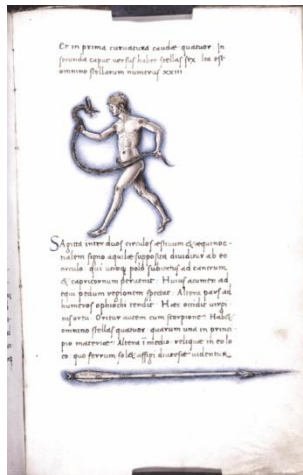 Et in prima curvatura caudæ quatuor. In
secunda caput versus habet stellas sex. Ita est
omnino stellarum numerus xxiii
SAgitta inter duos circulos æstivum & æquinoc-
tialem signo aquilæ supposita dividitur ab eo
circulo qui utroq polo subiectus ad cancrum
& capricornum pervenit. Huius acumen ad
equi pedum regionem spectat. Altera pars ad
humeros ophiuchi tendit. Hæc occidit virgi-
nis ortu. Oritur autem cum scorpione. Habet
omnino stellas quatuor quarum una in princi-
pio materiæ. Altera i medio. reliquæ in eo lo
co quo ferrum solet affigi diversæ videntur.